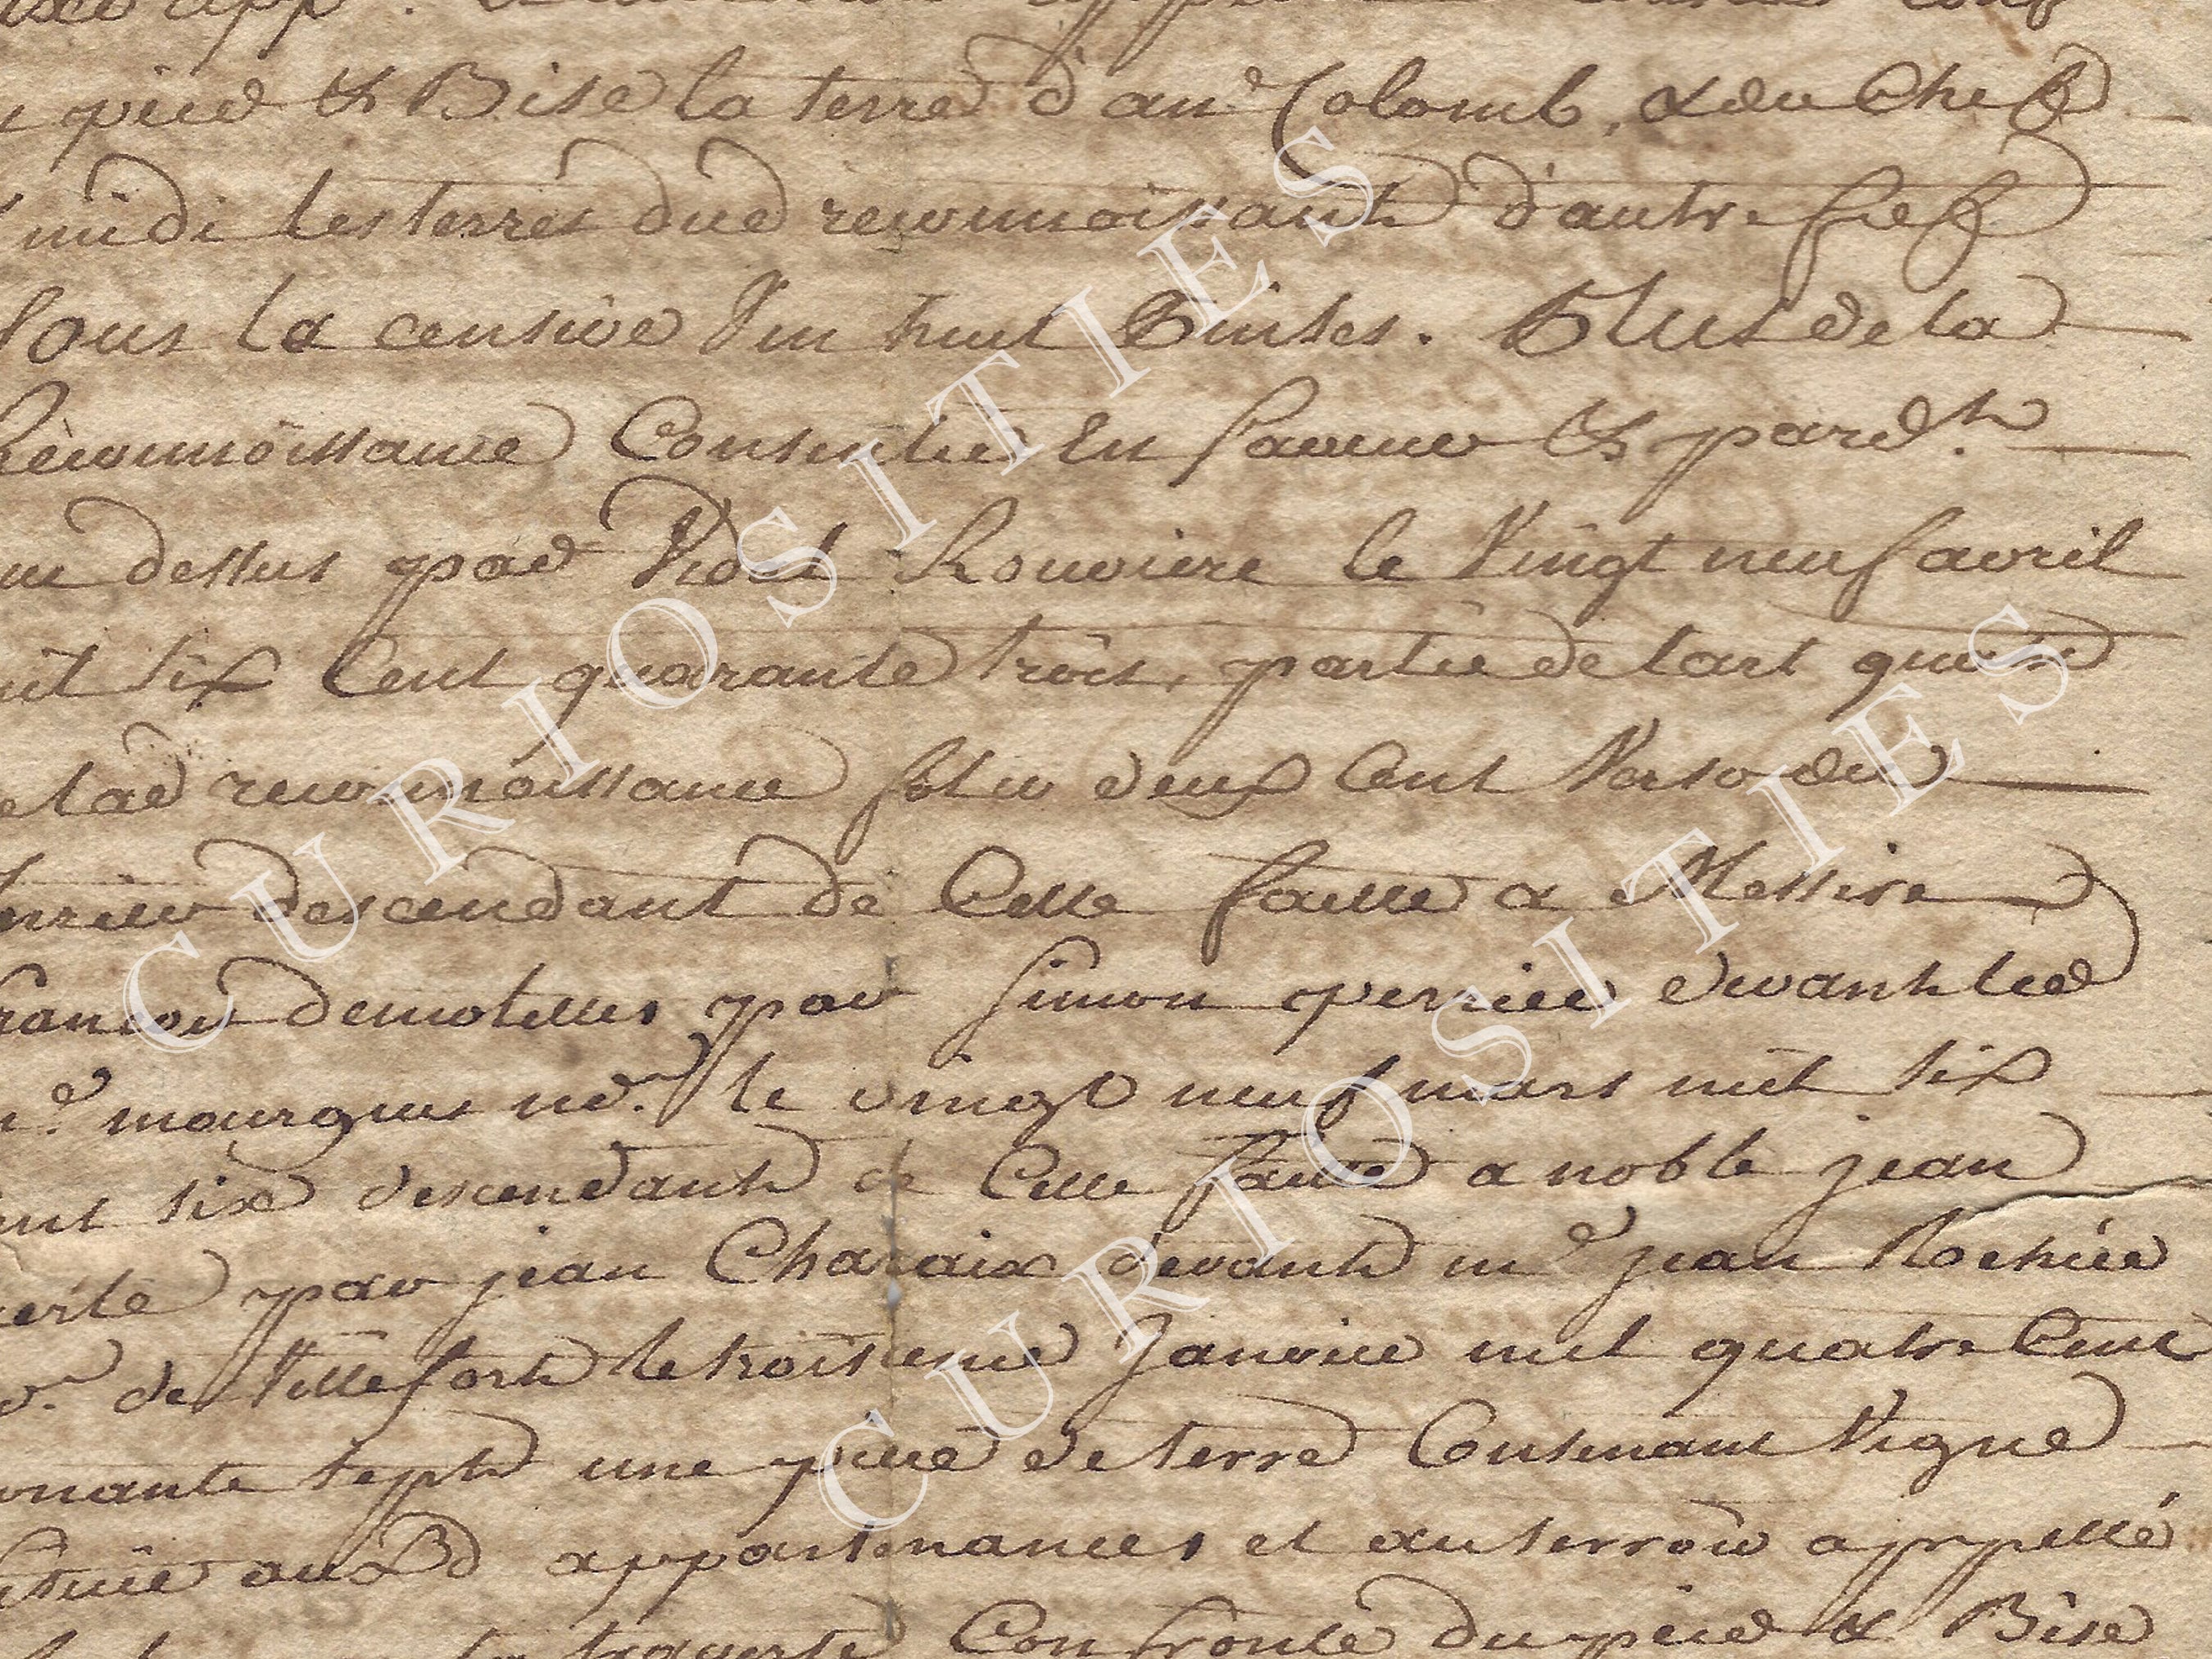 pied & Bise la terre d'anᵉ Colomb, & du chef
midi les terres dud reconnoissant d'autre fief
sous la censive d'un huit Quintes. Plus de la
Reconnoissance Consentie En faveur & pardᵗ
que dessus par Vidal Rouviere le Vingt neuf avril
mil six Cent quarante trois, partie de lart
de lad reconnoissance folio deux Cent Verso du
terrier descendant de Celle faitte a Messire
francois demolettes par simon perrier devant led
mᵉ mourgues noʳᵉ le vingt neuf mars mil six
cent six descendant de Celle faitte a noble jean
par jean Charaix devant mᵉ jean Rochier
noʳᵉ de Villefort le troisieme Janvier mil quatre Cent
nonante sept une piece de terre Contenant Vigne
situee auxd appartenances et au terroir appellé
la traverse Confronte du pied & Bise
CURIOSITIES
CURIOSITIES